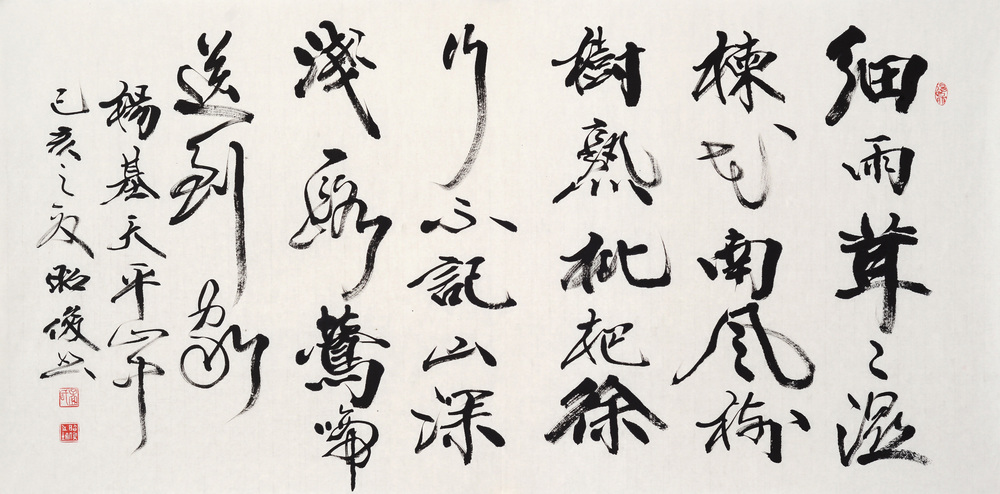 细雨茸〻湿
楝花南风树
樹熟枇杷徐
行不記山深
淺一路鶯啼
送到家
楊基天平山中
己亥之夏昭俊书